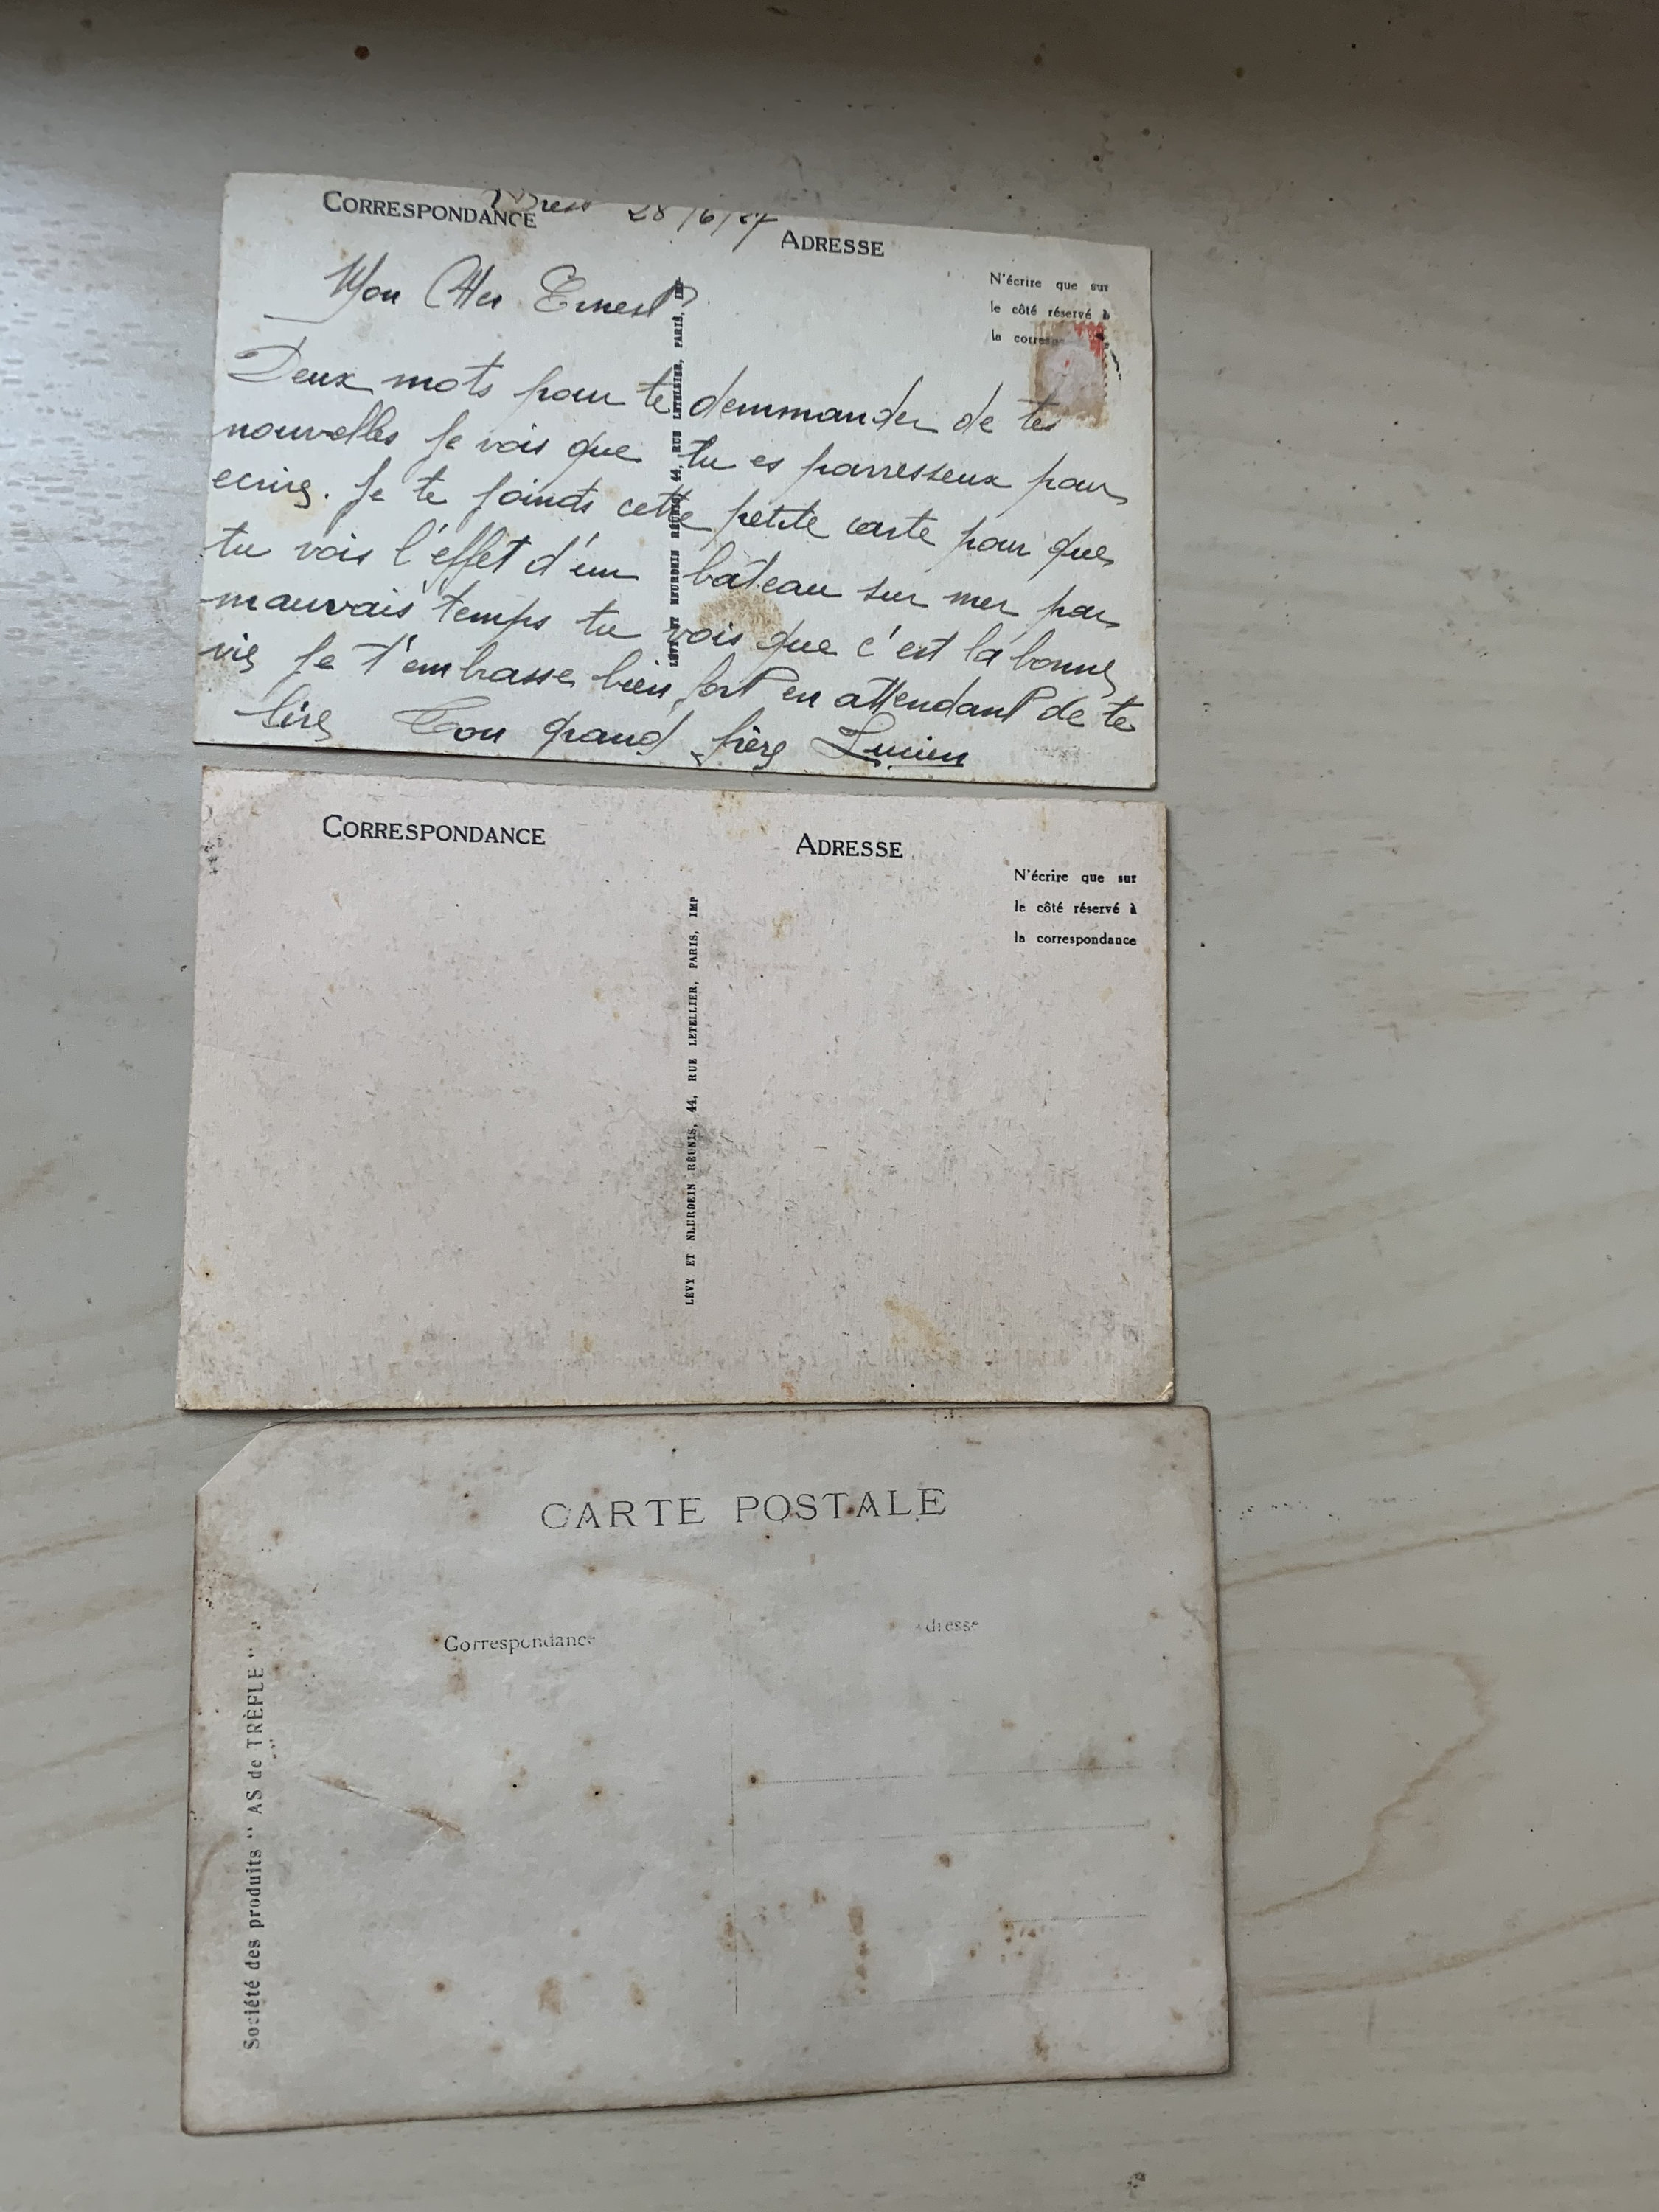 CORRESPONDANCE
Brest 28/6/27
ADRESSE
N'écrire que sur
le côté réservé à
la corresp
Mon Cher Ernest
Deux mots pour te demmander de tes
nouvelles je vois que tu es parresseux pour
ecrire. Je te joints cette petite carte pour que
tu vois l'effet d'un bateau sur mer par
mauvais temps tu vois que c'est la bonne
vie Je t'embrasse bien fort en attendant de te
lire Ton grand frère Lucien
LÉVY ET NEURDEIN RÉUNIS, 44, RUE LETELLIER, PARIS, IMP
CORRESPONDANCE
ADRESSE
N'écrire que sur
le côté réservé à
la correspondance
LÉVY ET NEURDEIN RÉUNIS, 44, RUE LETELLIER, PARIS, IMP
CARTE POSTALE
Correspondance
Adresse
Société des produits " AS de TRÈFLE "